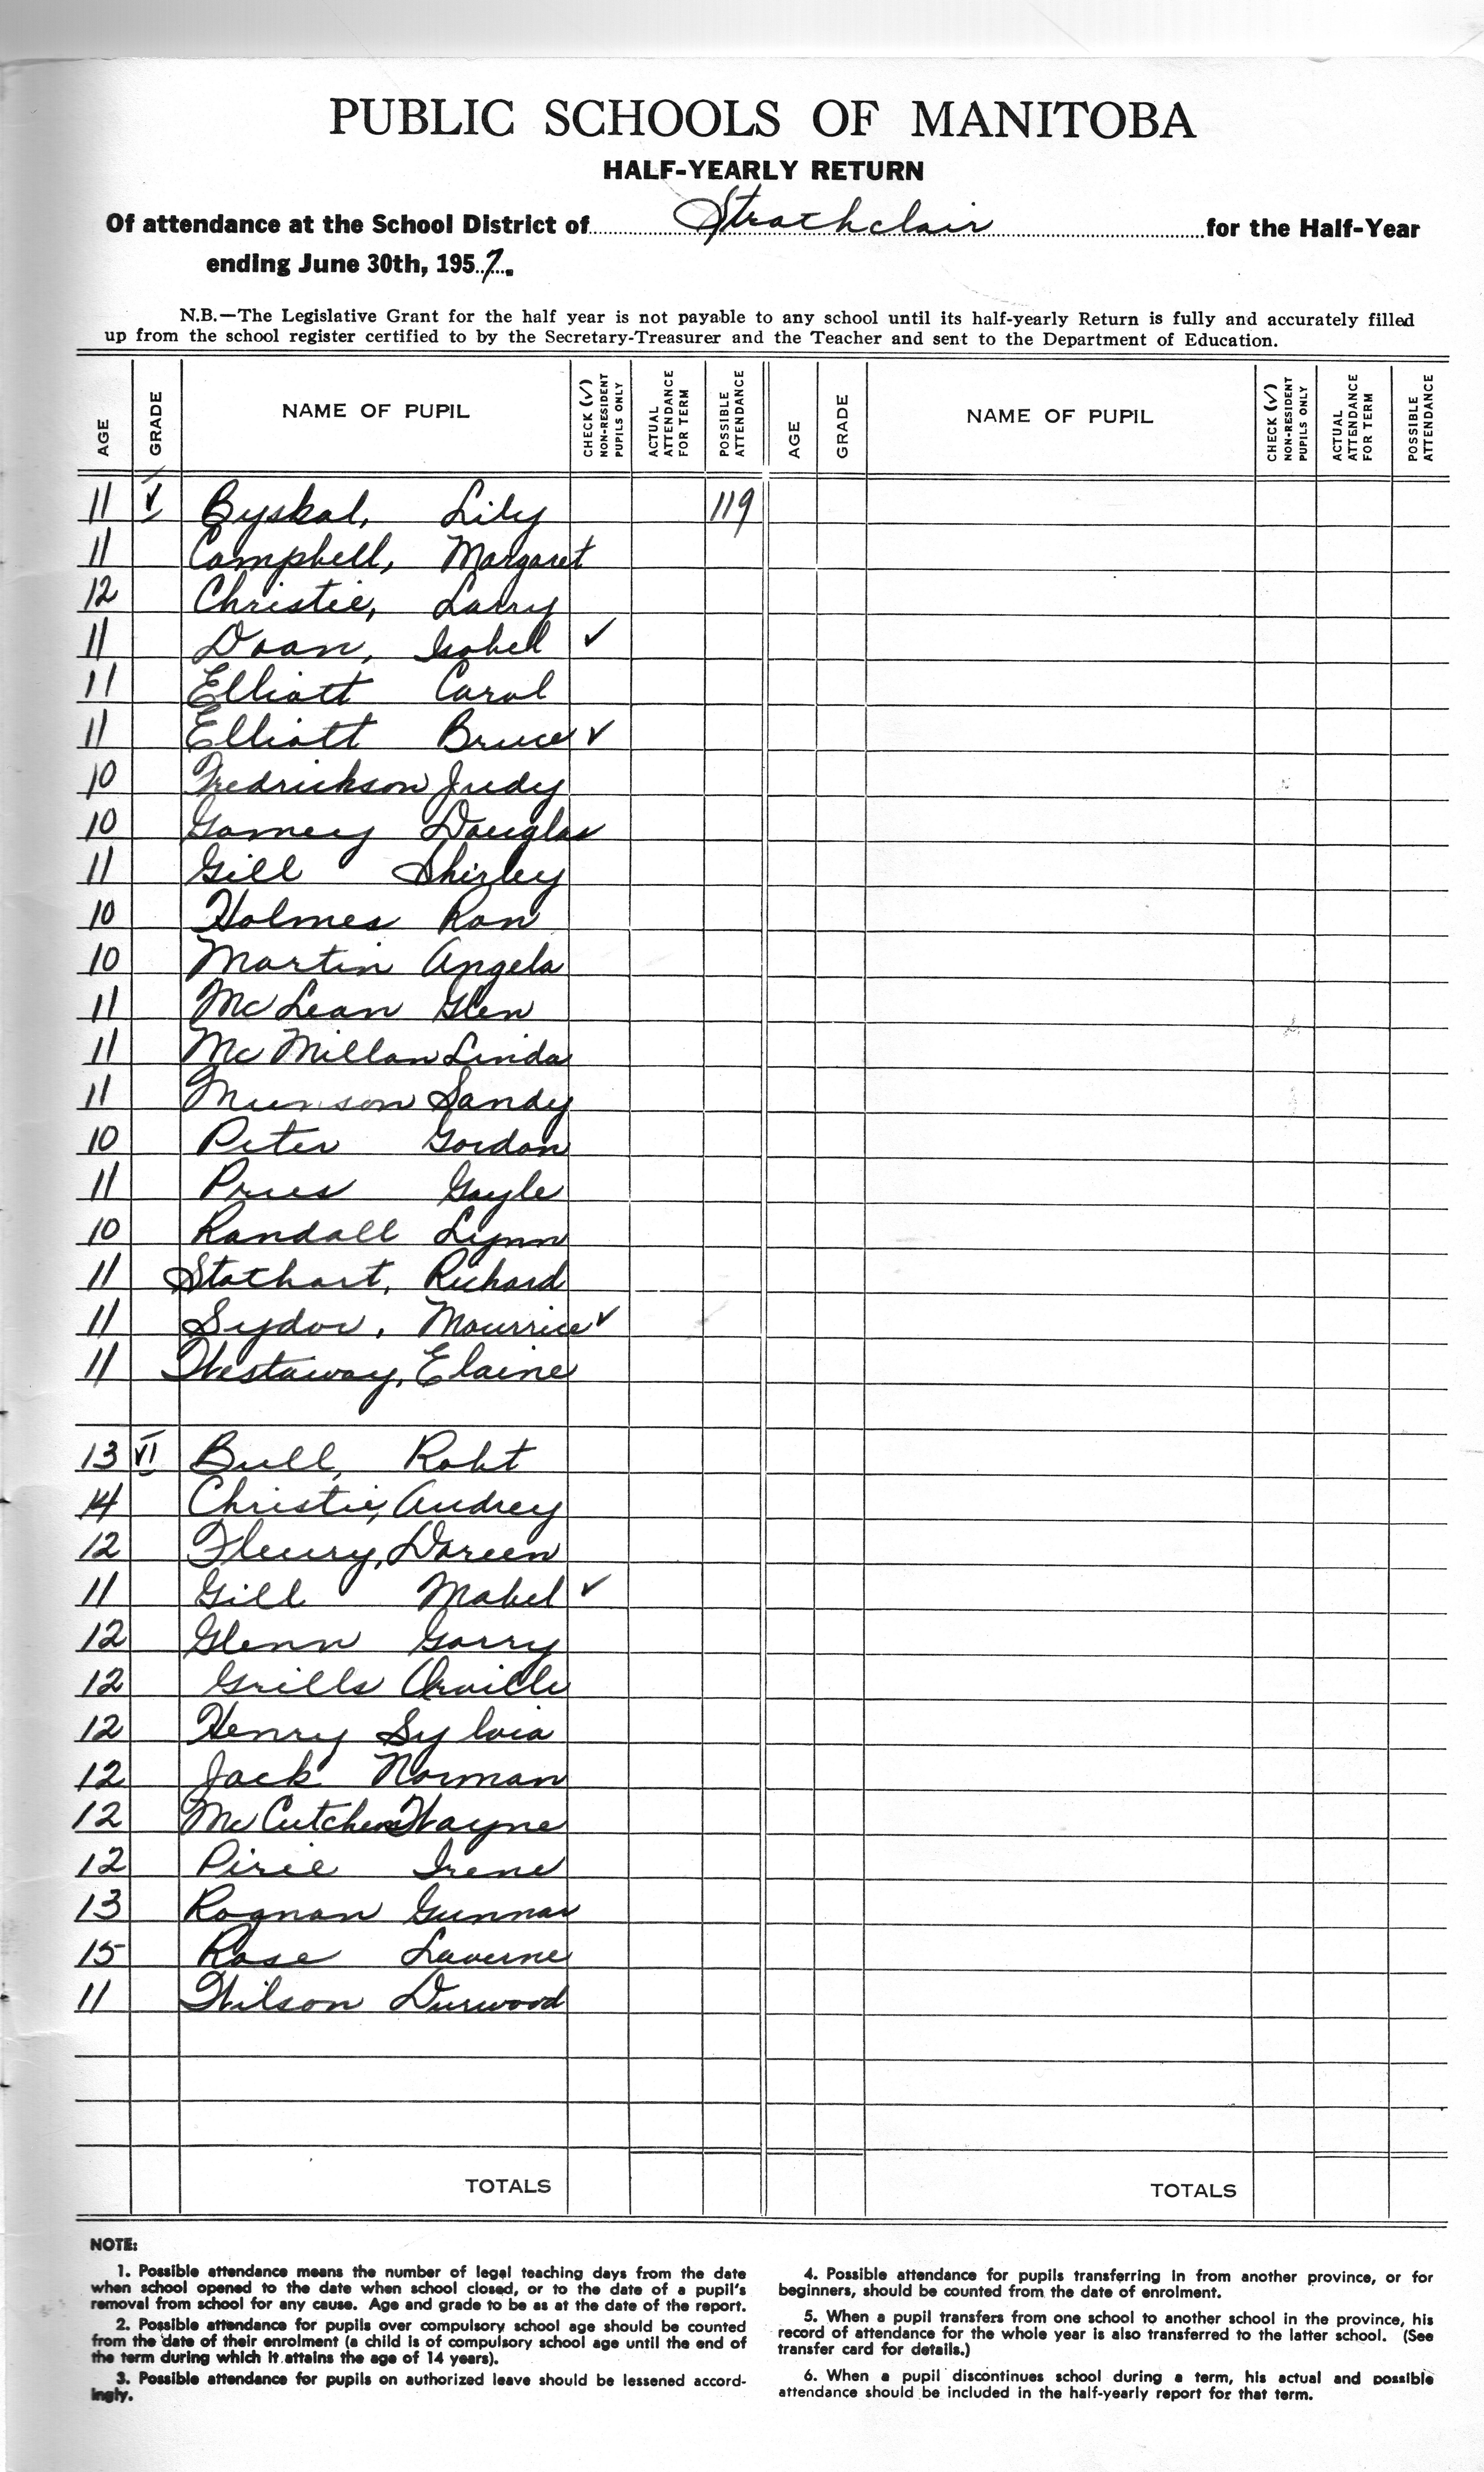 PUBLIC SCHOOLS OF MANITOBA
HALF-YEARLY RETURN
Of attendance at the School District of Strathclair for the Half-Year
ending June 30th, 1957.
N.B.—The Legislative Grant for the half year is not payable to any school until its half-yearly Return is fully and accurately filled
up from the school register certified to by the Secretary-Treasurer and the Teacher and sent to the Department of Education.
AGE GRADE NAME OF PUPIL CHECK (✓) NON-RESIDENT PUPILS ONLY ACTUAL ATTENDANCE FOR TERM POSSIBLE ATTENDANCE AGE GRADE NAME OF PUPIL CHECK (✓) NON-RESIDENT PUPILS ONLY ACTUAL ATTENDANCE FOR TERM POSSIBLE ATTENDANCE
11 V Byskal, Lily 119
11 Campbell, Margaret
12 Christie, Larry
11 Doan, Isobel ✓
11 Elliott Carol
11 Elliott Bruce ✓
10 Fredrickson Judy
10 Gamey Douglas
11 Gill Shirley
10 Holmes Ron
10 Martin Angela
11 McLean Glen
11 McMillan Linda
11 Munson Sandy
10 Peter Gordon
11 Pries Gayle
10 Randall Lynn
11 Stothart, Richard
11 Sydor, Maurice ✓
11 Westaway, Elaine
13 VI Bull, Robt
14 Christie, Audrey
12 Fleury, Doreen
11 Gill Mabel ✓
12 Glenn Garry
12 Grills Orville
12 Henry Sylvia
12 Jack Norman
12 McCutcheon Wayne
12 Pirie Irene
13 Rognan Gunnar
15 Rose Laverne
11 Wilson Durwood
TOTALS TOTALS
NOTE:
1. Possible attendance means the number of legal teaching days from the date
when school opened to the date when school closed, or to the date of a pupil's
removal from school for any cause. Age and grade to be as at the date of the report.
2. Possible attendance for pupils over compulsory school age should be counted
from the date of their enrolment (a child is of compulsory school age until the end of
the term during which it attains the age of 14 years).
3. Possible attendance for pupils on authorized leave should be lessened accord-
ingly.
4. Possible attendance for pupils transferring in from another province, or for
beginners, should be counted from the date of enrolment.
5. When a pupil transfers from one school to another school in the province, his
record of attendance for the whole year is also transferred to the latter school. (See
transfer card for details.)
6. When a pupil discontinues school during a term, his actual and possible
attendance should be included in the half-yearly report for that term.